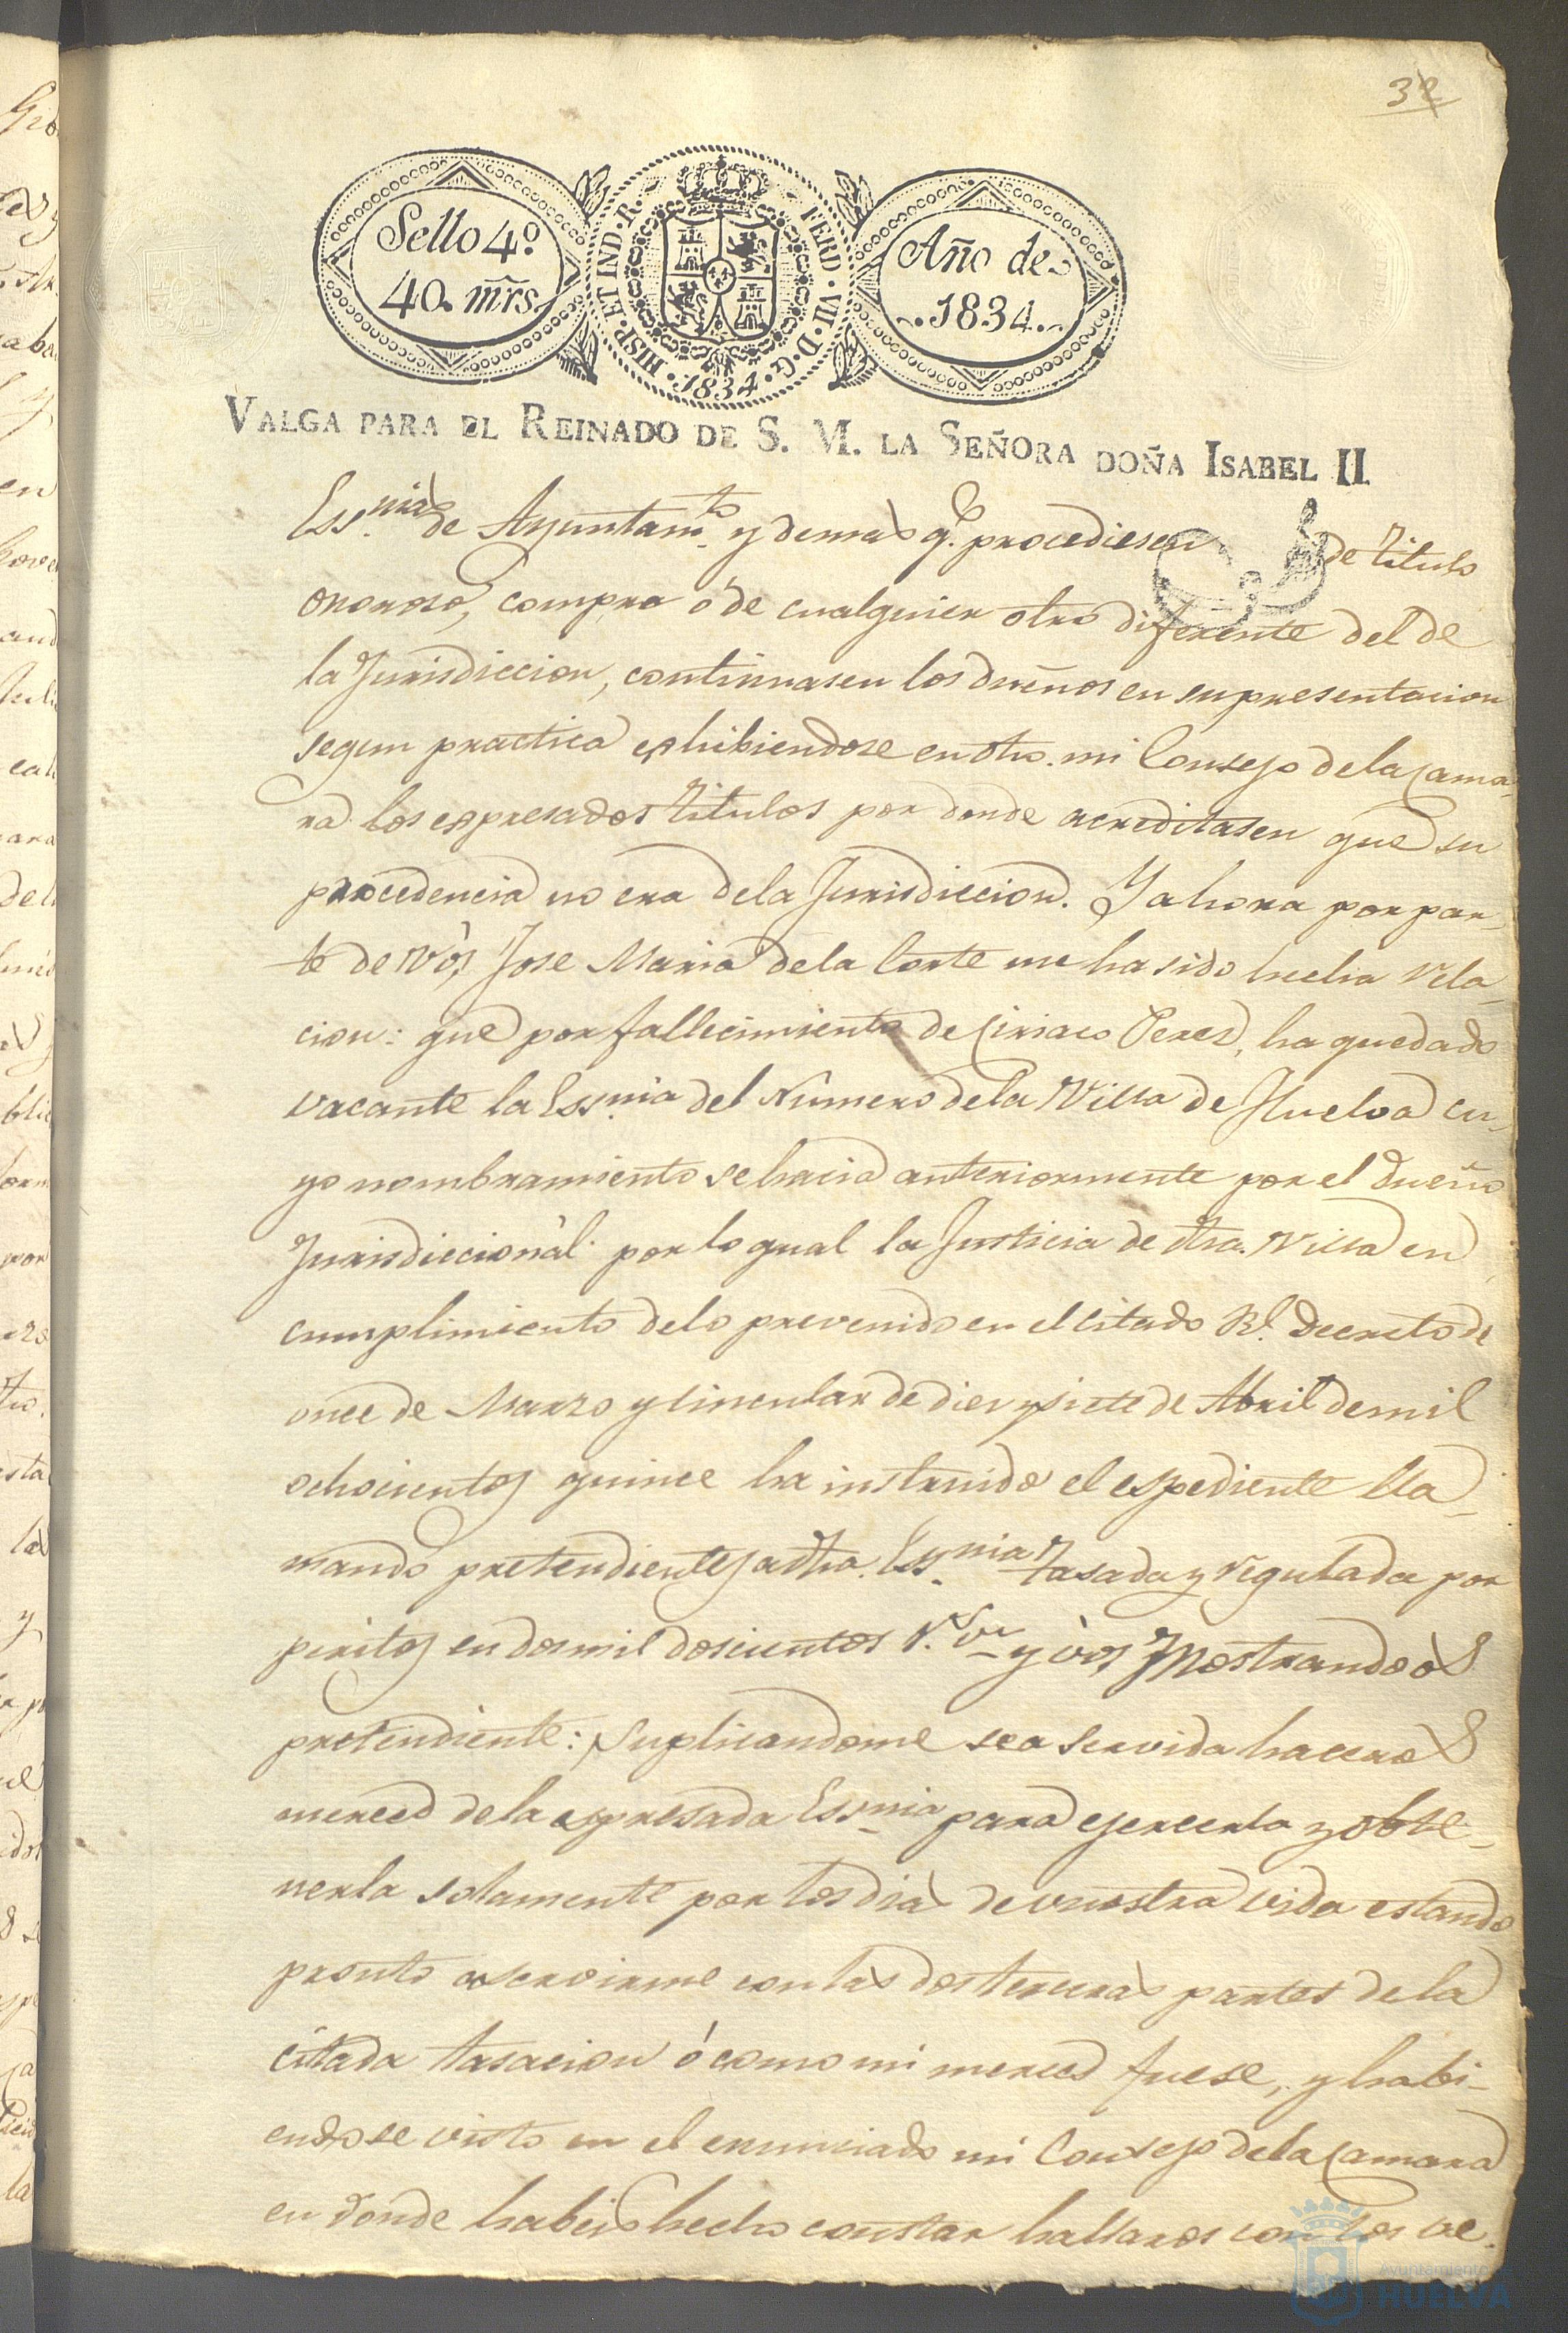 32
Sello 4º
40. mrs.
HISP. ET IND. R.
FERD. VII. D. G.
1834.
Año de
1834.
VALGA PARA EL REINADO DE S. M. LA SEÑORA DOÑA ISABEL II.
Essnias de Ayuntamto. y demas qe. procediesen de titulo
onoroso, compra ó de cualquier otro diferente del de
la Jurisdiccion, continuasen los dueños en su presentacion
segun practica exhibiendose en dho. mi Consejo de la Cama-
ra los expresados titulos por donde acreditasen que su
procedencia no era de la Jurisdiccion. Y ahora por par-
te de vos, Jose Maria de la Corte me ha sido hecha rela-
cion: que por fallecimiento de Ciriaco Perez, ha quedado
vacante la Essnia del Número de la Villa de Huelva cu-
yo nombramiento se hacia anteriormente por el Dueño
Jurisdiccional: por lo qual la Justicia de dha. Villa en
cumplimiento de lo prevenido en el citado Rl. Decreto de
once de Marzo y Circular de diez y siete de Abril de mil
ochocientos quince ha instruido el espediente lla-
mando pretendientes a dha. Essnia tasada y regulada por
peritos en dos mil doscientos rs. vn. y vos Mostrandoos
pretendiente: Suplicandome sea servida haceros
merced de la espresada Essnia para ejercerla y obte-
nerla solamente por los dias de vuestra vida estando
pronto a servirme con las dos terceras partes de la
citada tasacion ó como mi merced fuese, y habi-
endose visto en el enunciado mi Consejo de la Camara
en donde habeis hecho constar hallaros con los re-
Ayuntamiento
HUELVA